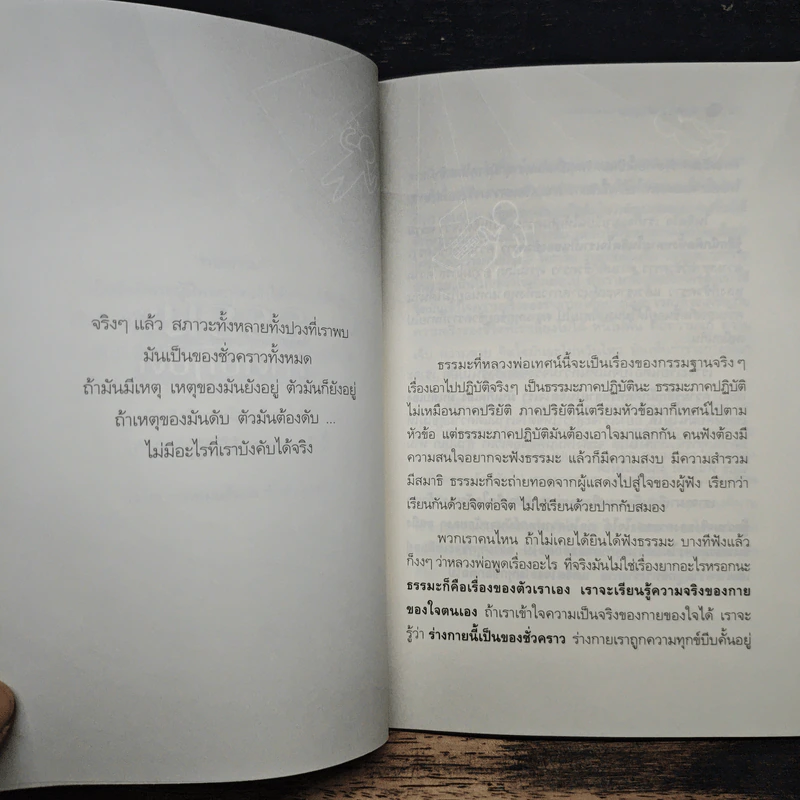 จริงๆ แล้ว สภาวะทั้งหลายทั้งปวงที่เราพบ
มันเป็นของชั่วคราวทั้งหมด
ถ้ามันมีเหตุ เหตุของมันยังอยู่ ตัวมันก็ยังอยู่
ถ้าเหตุของมันดับ ตัวมันต้องดับ ...
ไม่มีอะไรที่เราบังคับได้จริง
ธรรมะที่หลวงพ่อเทศน์นี้จะเป็นเรื่องของกรรมฐานจริงๆ
เรื่องเอาไปปฏิบัติจริงๆ เป็นธรรมะภาคปฏิบัตินะ ธรรมะภาคปฏิบัติ
ไม่เหมือนภาคปริยัติ ภาคปริยัตินี้เตรียมหัวข้อมาก็เทศน์ไปตาม
หัวข้อ แต่ธรรมะภาคปฏิบัติมันต้องเอาใจมาแลกกัน คนฟังต้องมี
ความสนใจอยากจะฟังธรรมะ แล้วก็มีความสงบ มีความสำรวม
มีสมาธิ ธรรมะก็จะถ่ายทอดจากผู้แสดงไปสู่ใจของผู้ฟัง เรียกว่า
เรียนกันด้วยจิตต่อจิต ไม่ใช่เรียนด้วยปากกับสมอง
พวกเราคนไหน ถ้าไม่เคยได้ยินได้ฟังธรรมะ บางทีฟังแล้ว
ก็งงๆ ว่าหลวงพ่อพูดเรื่องอะไร ที่จริงมันไม่ใช่เรื่องยากอะไรหรอกนะ
ธรรมะก็คือเรื่องของตัวเราเอง เราจะเรียนรู้ความจริงของกาย
ของใจตนเอง ถ้าเราเข้าใจความเป็นจริงของกายของใจได้ เราจะ
รู้ว่า ร่างกายนี้เป็นของชั่วคราว ร่างกายเราถูกความทุกข์บีบคั้นอยู่